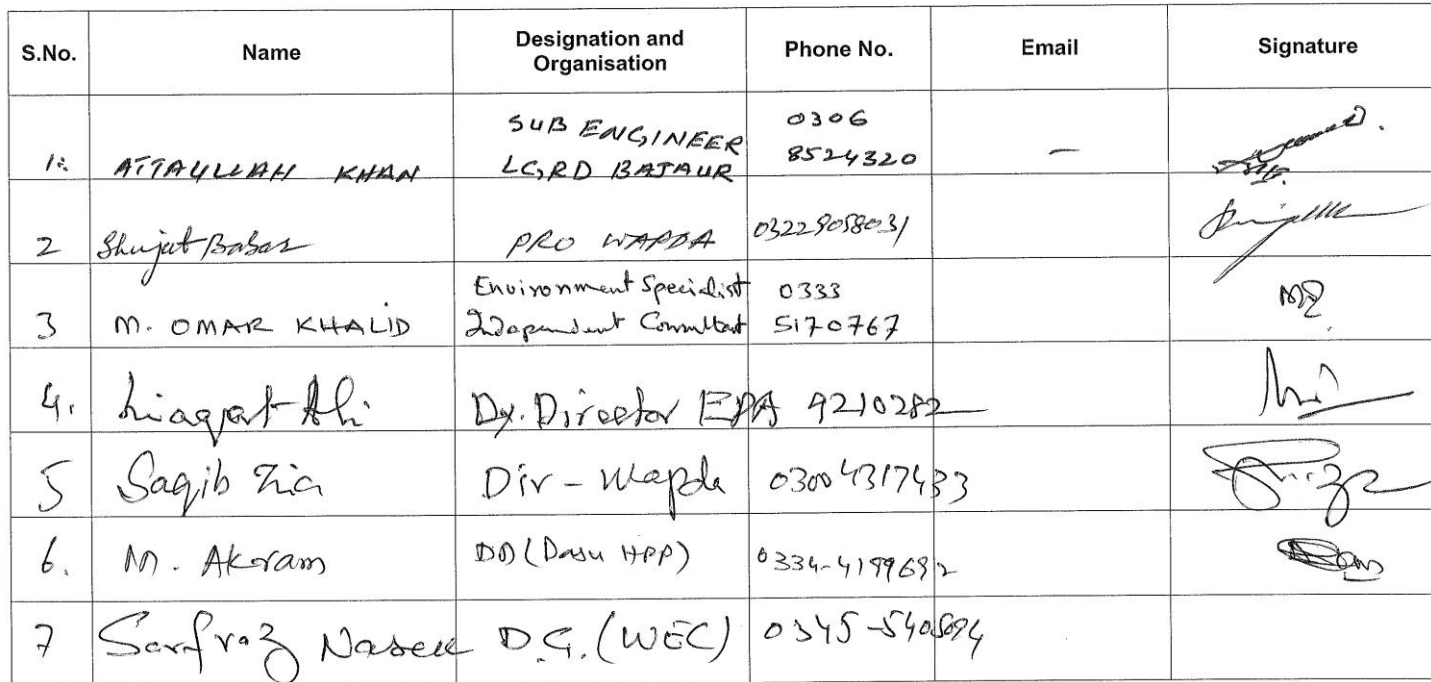 S.No. Name Designation and Organisation Phone No. Email Signature
1: ATTAULLAH KHAN SUB ENGINEER LG,RD BAJAUR 0306 8524320 –
2 Shujat Babar PRO WAPDA 03229058031
3 M. OMAR KHALID Environment Specialist Independent Consultant 0333 5170767
4. Liaqat Ali Dy. Director EPA 9210282
5 Saqib Zia Dir - Wapda 03004317433
6. M. Akram DD (Dasu HPP)
7 Sarfraz D.G. (WEC)